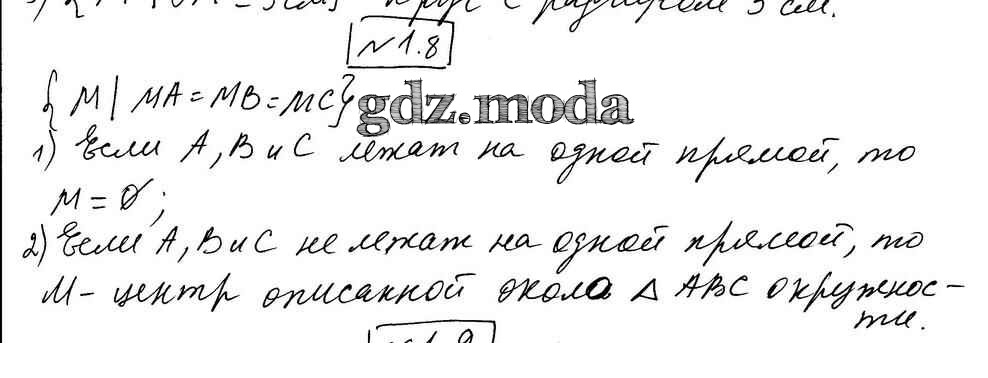 круг с радиусом 3 см.
№1.8
{ M | MA = MB = MC}
gdz.moda
1) Если A, B и C лежат на одной прямой, то
M = ∅;
2) Если A, B и C не лежат на одной прямой, то
M - центр описанной около △ ABC окружнос-
ти.